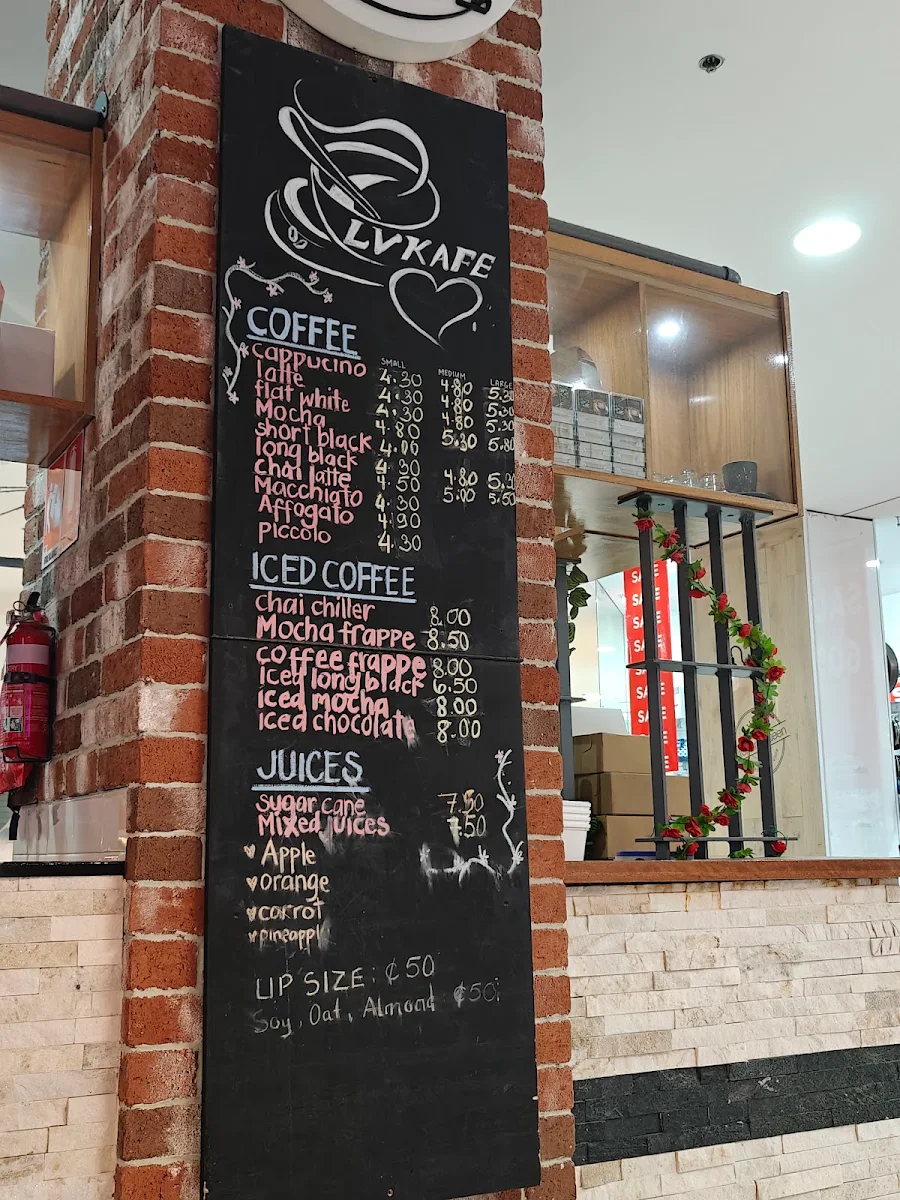 LV KAFE
COFFEE
SMALL MEDIUM LARGE
cappucino 4.30 4.80 5.30
latte 4.30 4.80 5.30
flat white 4.30 4.80 5.30
Mocha 4.80 5.30 5.80
short black 4.00
long black 4.30 4.80
chai latte 4.50 5.00 5.50
Macchiato 4.30
Affogato 4.90
Piccolo 4.30
ICED COFFEE
chai chiller 8.00
Mocha frappe 8.50
coffee frappe 8.00
Iced long black 6.50
iced mocha 8.00
iced chocolate 8.00
JUICES
sugar cane 7.50
Mixed juices 7.50
Apple
orange
carrot
pineappl
UP SIZE: ¢50
Soy, Oat, Almond ¢50
SALE
SALE
SALE
SALE
SALE
SALE
SALE